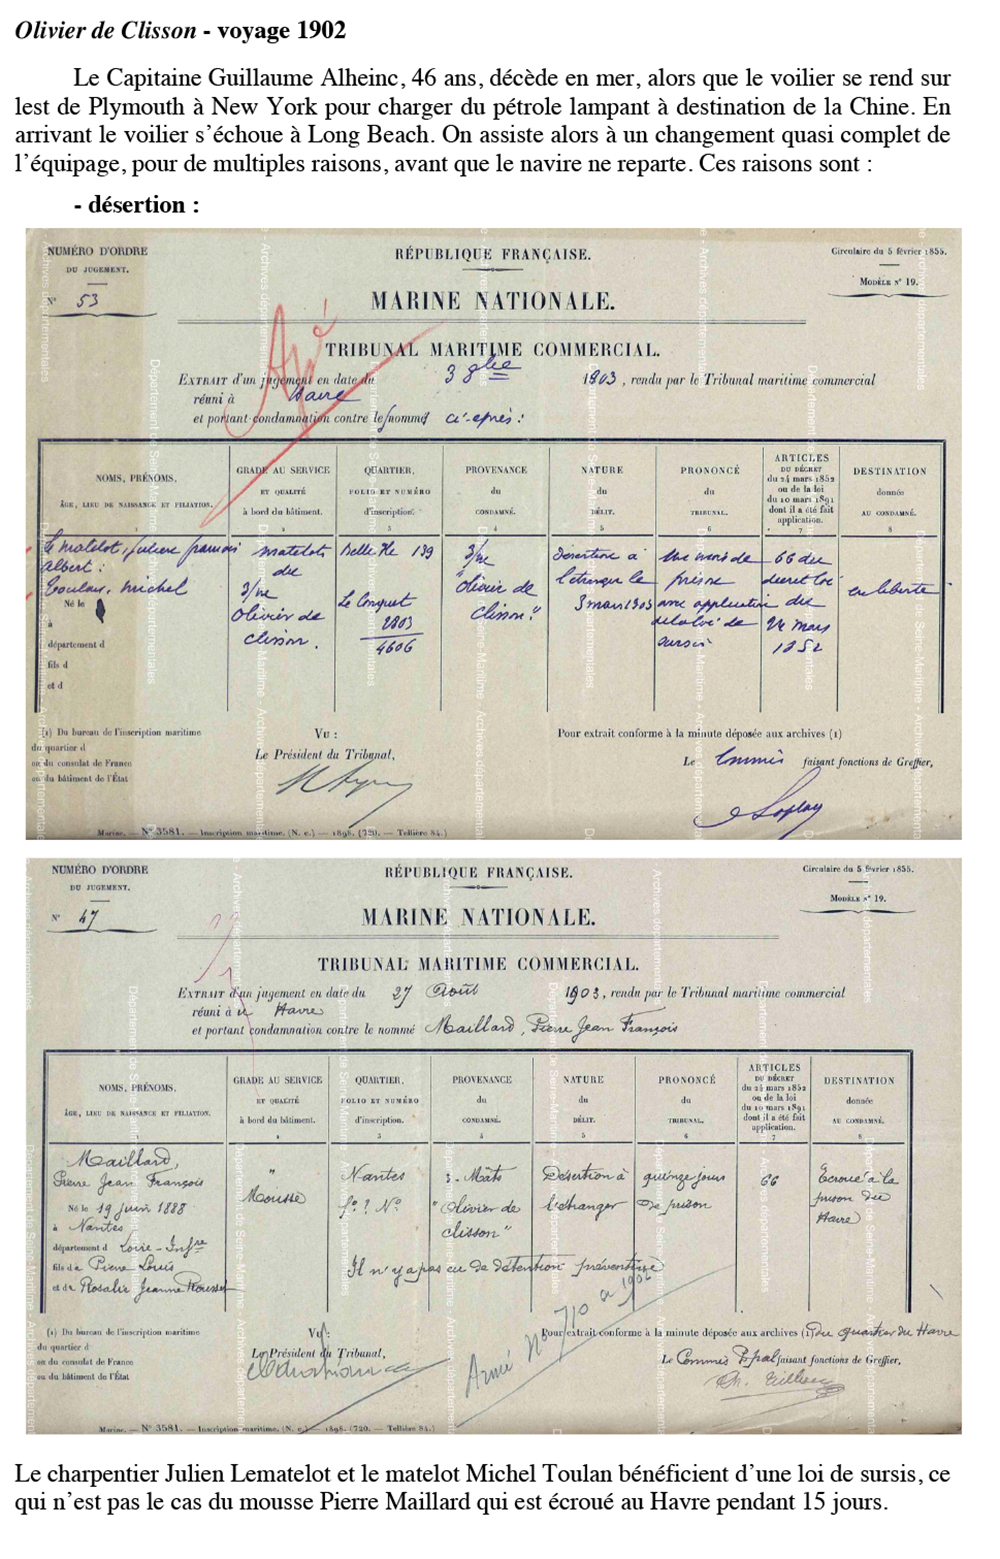 Olivier de Clisson - voyage 1902
Le Capitaine Guillaume Alheinc, 46 ans, décède en mer, alors que le voilier se rend sur
lest de Plymouth à New York pour charger du pétrole lampant à destination de la Chine. En
arrivant le voilier s’échoue à Long Beach. On assiste alors à un changement quasi complet de
l’équipage, pour de multiples raisons, avant que le navire ne reparte. Ces raisons sont :
- désertion :
NUMÉRO D'ORDRE
DU JUGEMENT.
N° 53
RÉPUBLIQUE FRANÇAISE.
MARINE NATIONALE.
Circulaire du 5 février 1855.
MODÈLE N° 19.
TRIBUNAL MARITIME COMMERCIAL.
EXTRAIT d'un jugement en date du 3 9bre 1903, rendu par le Tribunal maritime commercial
réuni à Havre
et portant condamnation contre les nommés ci-après :
NOMS, PRÉNOMS,
ÂGE, LIEU DE NAISSANCE ET FILIATION.
1
GRADE AU SERVICE
ET QUALITÉ
à bord du bâtiment.
2
QUARTIER,
FOLIO ET NUMÉRO
d'inscription.
3
PROVENANCE
du
CONDAMNÉ.
4
NATURE
du
DÉLIT.
5
PRONONCÉ
du
TRIBUNAL.
6
ARTICLES
DU DÉCRET
du 24 mars 1852
ou de la loi
du 10 mars 1891
dont il a été fait
application.
7
DESTINATION
donnée
AU CONDAMNÉ.
8
Le matelot, Julien françois
albert :
Toulan, michel
Né le
à
département d
fils d
et d
matelots
du
3/m
Olivier de
clisson.
Belle Ile 139
Le Conquet
2803
4606
3/m
"Olivier de
Clisson"
Désertion à
l'étranger le
3 mars 1903
Un mois de
prison
avec application
de la loi de
sursis
66 du
décret loi
du
24 mars
1852
en liberté
(1) Du bureau de l'inscription maritime
du quartier d
ou du consulat de France
ou du bâtiment de l'État
Vu :
Le Président du Tribunal,
Pour extrait conforme à la minute déposée aux archives (1)
Le Commis faisant fonctions de Greffier,
Marine. — N° 3581. — Inscription maritime. (N. c.) — 1898. (720. — Tellière 84.)
NUMÉRO D'ORDRE
DU JUGEMENT.
N° 47
RÉPUBLIQUE FRANÇAISE.
MARINE NATIONALE.
Circulaire du 5 février 1855.
MODÈLE N° 19.
TRIBUNAL MARITIME COMMERCIAL.
EXTRAIT d'un jugement en date du 27 Août 1903, rendu par le Tribunal maritime commercial
réuni à u Havre
et portant condamnation contre le nommé Maillard, Pierre Jean François
NOMS, PRÉNOMS,
ÂGE, LIEU DE NAISSANCE ET FILIATION.
GRADE AU SERVICE
ET QUALITÉ
à bord du bâtiment.
QUARTIER,
FOLIO ET NUMÉRO
d'inscription.
3
PROVENANCE
du
CONDAMNÉ.
4
NATURE
du
DÉLIT.
5
PRONONCÉ
du
TRIBUNAL.
6
ARTICLES
DU DÉCRET
du 24 mars 1852
ou de la loi
du 10 mars 1891
dont il a été fait
application.
7
DESTINATION
donnée
AU CONDAMNÉ.
8
Maillard,
Pierre Jean François
Né le 19 juin 1888
à Nantes
département d Loire-Infre
fils de Pierre Louis
et de Rosalie Jeanne Rousset
"
Mousse
Nantes
f° ? N°
3-Mâts
"Olivier de
Clisson"
Désertion à
l'étranger
quinze jours
de prison
66
Écroué à la
prison du
Havre
Il n'y a pas eu de détention préventive
Armé N° 710 a 1902
(1) Du bureau de l'inscription maritime
du quartier d
ou du consulat de France
ou du bâtiment de l'État
Vu :
Le Président du Tribunal,
Pour extrait conforme à la minute déposée aux archives (1) Du quartier du Havre
Le Commis Ppal faisant fonctions de Greffier,
Marine. — N° 3581. — Inscription maritime. (N. c.) — 1898. (720. — Tellière 84.)
Le charpentier Julien Lematelot et le matelot Michel Toulan bénéficient d’une loi de sursis, ce
qui n’est pas le cas du mousse Pierre Maillard qui est écroué au Havre pendant 15 jours.